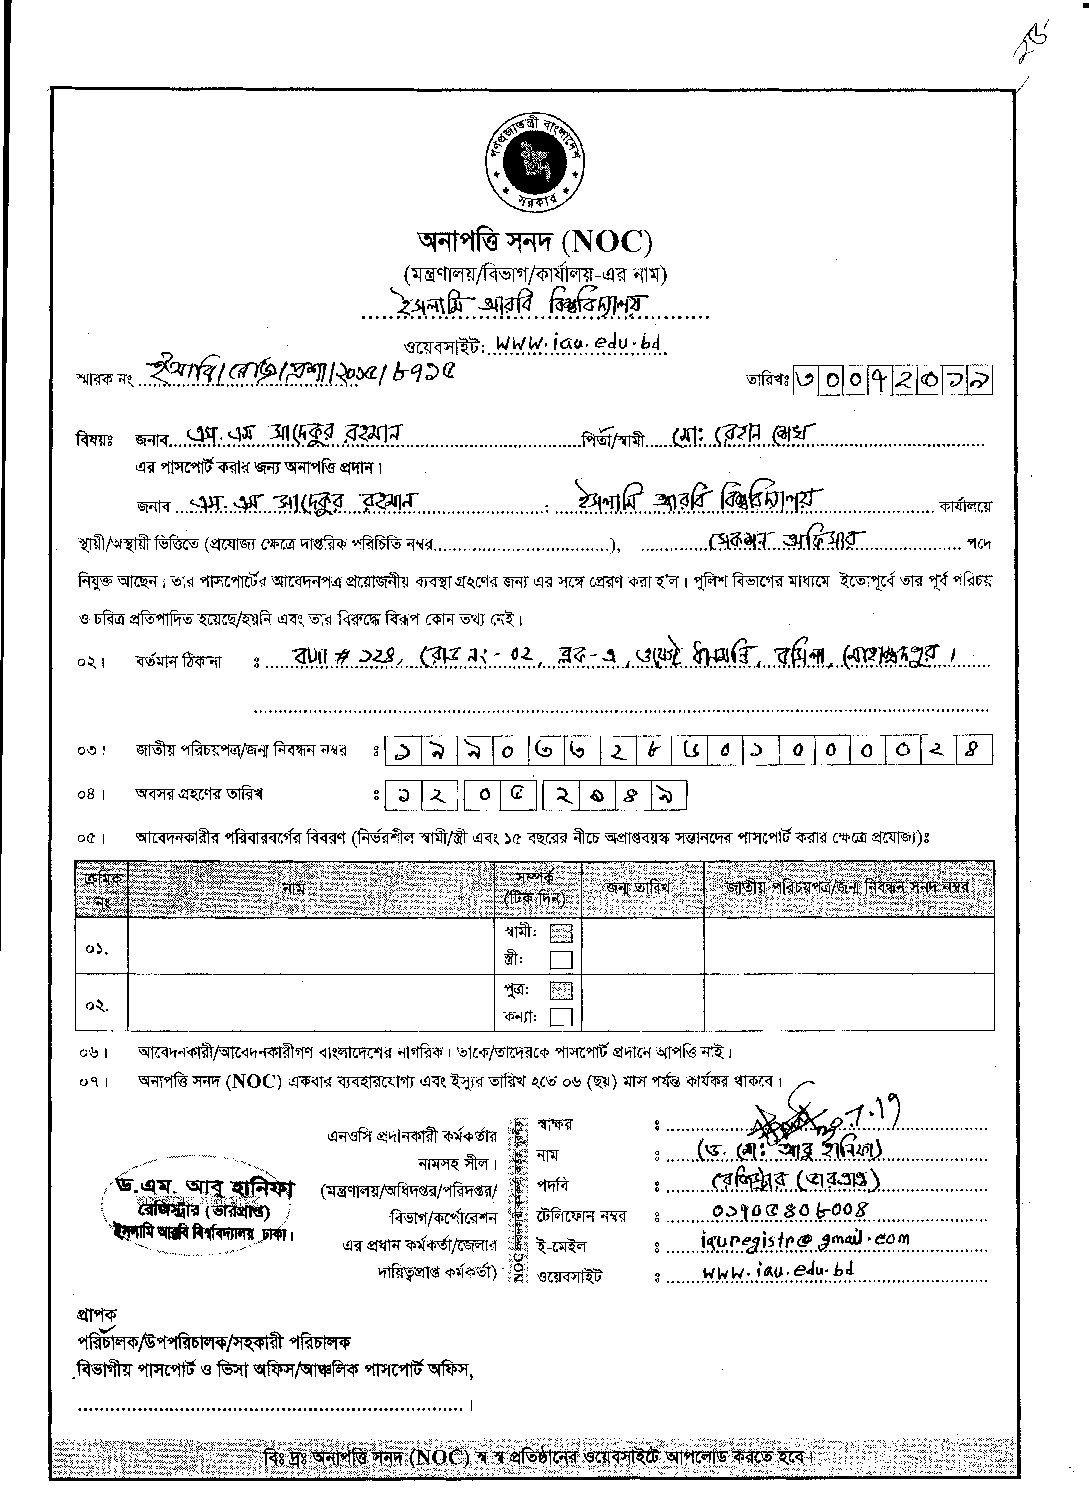 ২৬
গণপ্রজাতন্ত্রী বাংলাদেশ
সরকার
অনাপত্তি সনদ (NOC)
(মন্ত্রণালয়/বিভাগ/কার্যালয়-এর নাম)
ইসলামি আরবি বিশ্ববিদ্যালয়
ওয়েবসাইট: www.iau.edu.bd
স্মারক নং ইআবি/রেজি/প্রশা/২০১৫/৮৭১৫
তারিখঃ ৩ ০ ০ ৭ ২ ০ ১ ৯
বিষয়ঃ জনাব এস.এম সাদেকুর রহমান পিতা/স্বামী মো: রেহান শেখ
এর পাসপোর্ট করার জন্য অনাপত্তি প্রদান।
জনাব এস.এম সাদেকুর রহমান : ইসলামি আরবি বিশ্ববিদ্যালয় কার্যালয়ে
স্থায়ী/অস্থায়ী ভিত্তিতে (প্রযোজ্য ক্ষেত্রে দাপ্তরিক পরিচিতি নম্বর..............................), সেকশন অফিসার পদে
নিযুক্ত আছেন। তার পাসপোর্টের আবেদনপত্র প্রয়োজনীয় ব্যবস্থা গ্রহণের জন্য এর সঙ্গে প্রেরণ করা হ'ল। পুলিশ বিভাগের মাধ্যমে ইতোপূর্বে তার পূর্ব পরিচয়
ও চরিত্র প্রতিপাদিত হয়েছে/হয়নি এবং তার বিরুদ্ধে বিরূপ কোন তথ্য নেই।
০২। বর্তমান ঠিকানা : বাসা # ১২৪, রোড নং - ০২, ব্লক-এ, ওয়েস্ট ধানমন্ডি, বছিলা, মোহাম্মদপুর।
০৩। জাতীয় পরিচয়পত্র/জন্ম নিবন্ধন নম্বর : ১ ৯ ৯ ০ ৬ ৬ ২ ৮ ৬ ০ ১ ০ ০ ০ ০ ২ ৪
০৪। অবসর গ্রহণের তারিখ : ১ ২ ০ ৫ ২ ০ ৪ ৯
০৫। আবেদনকারীর পরিবারবর্গের বিবরণ (নির্ভরশীল স্বামী/স্ত্রী এবং ১৫ বছরের নীচে অপ্রাপ্তবয়স্ক সন্তানদের পাসপোর্ট করার ক্ষেত্রে প্রযোজ্য)ঃ
ক্রমিক নং নাম সম্পর্ক (টিক দিন) জন্ম তারিখ জাতীয় পরিচয়পত্র/জন্ম নিবন্ধন সনদ নম্বর
০১. স্বামী:
স্ত্রী:
০২. পুত্র:
কন্যা:
০৬। আবেদনকারী/আবেদনকারীগণ বাংলাদেশের নাগরিক। তাকে/তাদেরকে পাসপোর্ট প্রদানে আপত্তি নাই।
০৭। অনাপত্তি সনদ (NOC) একবার ব্যবহারযোগ্য এবং ইস্যুর তারিখ হতে ০৬ (ছয়) মাস পর্যন্ত কার্যকর থাকবে।
এনওসি প্রদানকারী কর্মকর্তার
নামসহ সীল।
(মন্ত্রণালয়/অধিদপ্তর/পরিদপ্তর/
বিভাগ/কর্পোরেশন
এর প্রধান কর্মকর্তা/জেলার
দায়িত্বপ্রাপ্ত কর্মকর্তা)
ড.এম. আবু হানিফা
রেজিস্ট্রার (ভারপ্রাপ্ত)
ইসলামি আরবি বিশ্ববিদ্যালয় ঢাকা।
স্বাক্ষর :
নাম : (ড. মো: আবু হানিফা)
পদবি : রেজিস্ট্রার (ভারপ্রাপ্ত)
টেলিফোন নম্বর : ০১৭০৫৪০৮০০৪
ই-মেইল : iauregistr@gmail.com
ওয়েবসাইট : www.iau.edu.bd
প্রাপক
পরিচালক/উপপরিচালক/সহকারী পরিচালক
বিভাগীয় পাসপোর্ট ও ভিসা অফিস/আঞ্চলিক পাসপোর্ট অফিস,
বিঃ দ্রঃ অনাপত্তি সনদ (NOC) স্ব স্ব প্রতিষ্ঠানের ওয়েবসাইটে আপলোড করতে হবে।